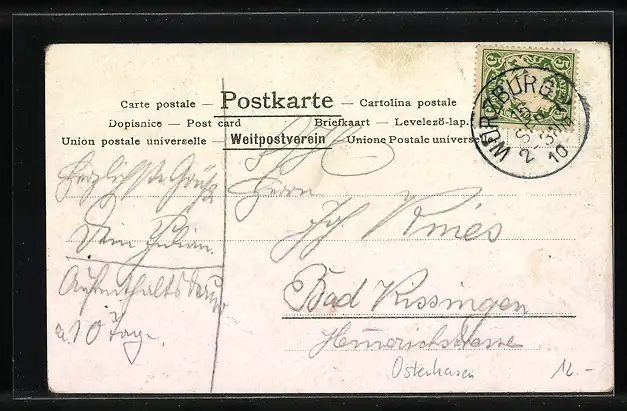 Carte postale — Postkarte — Cartolina postale
Dopisnice — Post card Briefkaart — Levelező-lap.
Union postale universelle — Weltpostverein — Unione Postale universe
5 5
WÜRZBURG 2
Herzlichste Grüße
Dein Julian.
Aufenthaltsdauer
a. 10 Tage.
Herrn
Jos. Kries
Bad Kissingen
Heinrichstrasse
Osterhasen
12.-